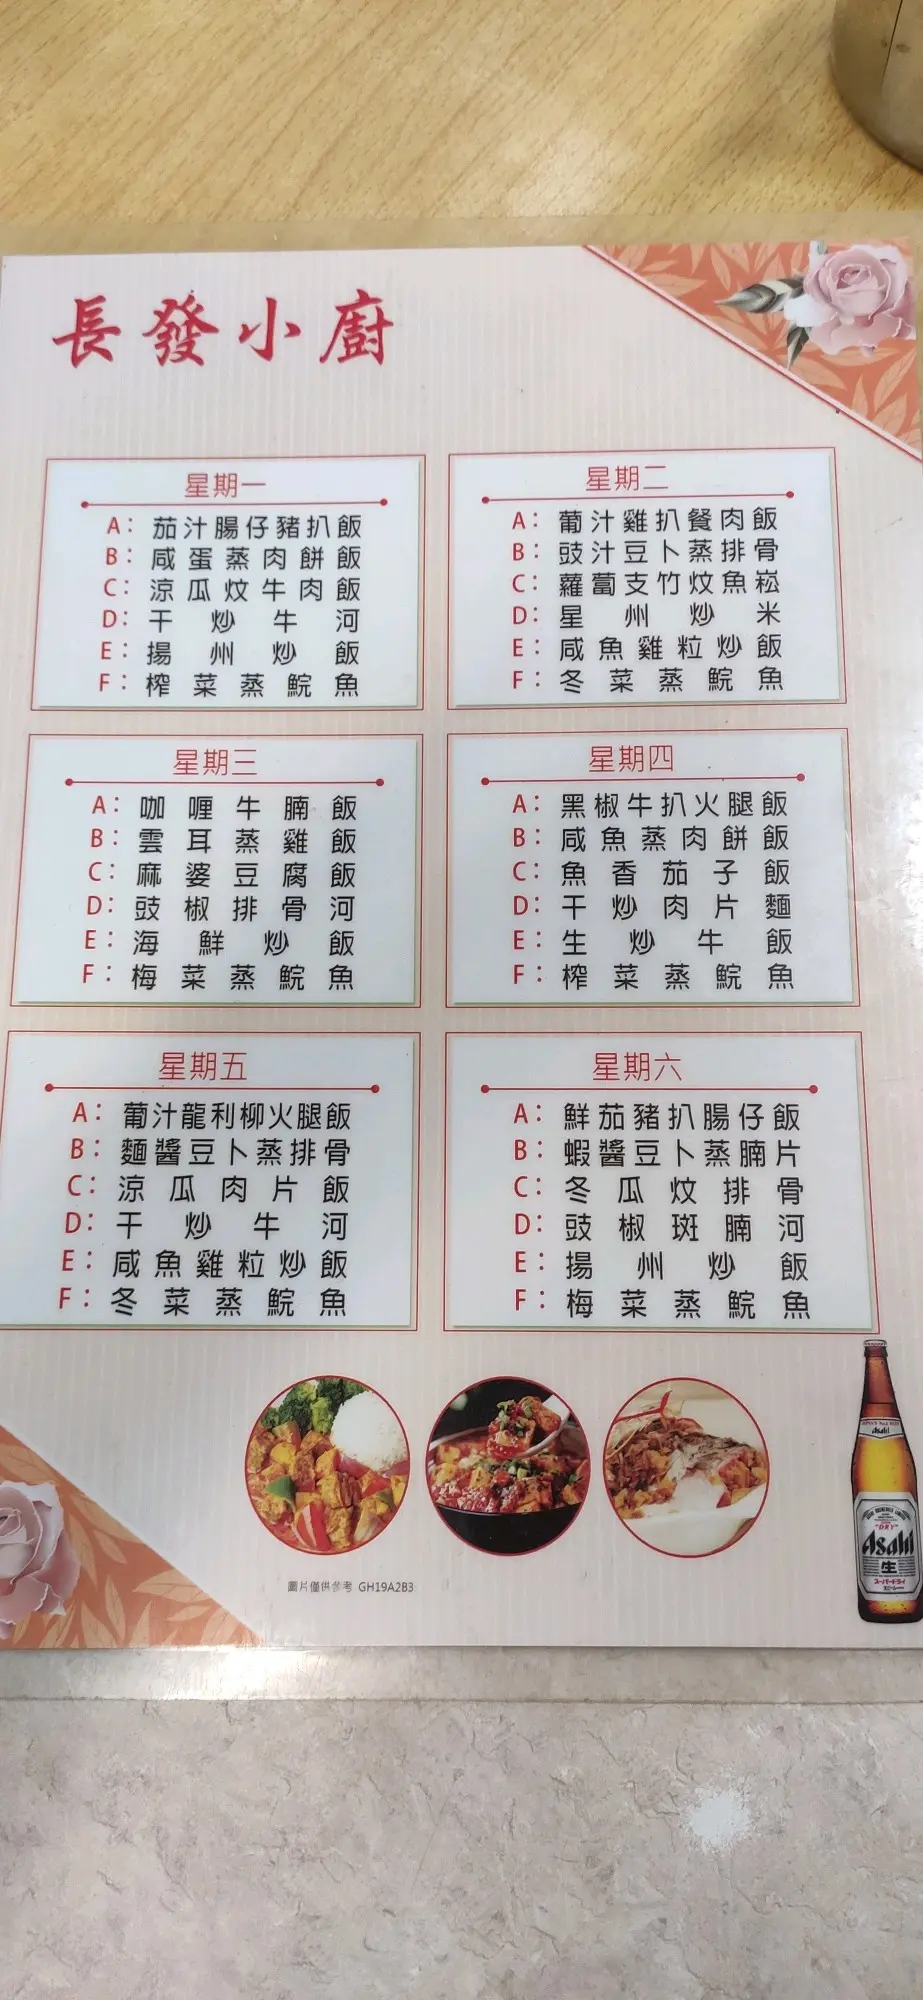 長發小廚
星期一
A：茄汁腸仔豬扒飯
B：咸蛋蒸肉餅飯
C：涼瓜炆牛肉飯
D：干炒牛河
E：揚州炒飯
F：榨菜蒸鯇魚
星期二
A：葡汁雞扒餐肉飯
B：豉汁豆卜蒸排骨
C：蘿蔔支竹炆魚崧
D：星州炒米
E：咸魚雞粒炒飯
F：冬菜蒸鯇魚
星期三
A：咖喱牛腩飯
B：雲耳蒸雞飯
C：麻婆豆腐飯
D：豉椒排骨河
E：海鮮炒飯
F：梅菜蒸鯇魚
星期四
A：黑椒牛扒火腿飯
B：咸魚蒸肉餅飯
C：魚香茄子飯
D：干炒肉片麵
E：生炒牛飯
F：榨菜蒸鯇魚
星期五
A：葡汁龍利柳火腿飯
B：麵醬豆卜蒸排骨
C：涼瓜肉片飯
D：干炒牛河
E：咸魚雞粒炒飯
F：冬菜蒸鯇魚
星期六
A：鮮茄豬扒腸仔飯
B：蝦醬豆卜蒸腩片
C：冬瓜炆排骨
D：豉椒斑腩河
E：揚州炒飯
F：梅菜蒸鯇魚
圖片僅供參考 GH19A2B3
Asahi
"DRY"
Asahi
生
スーパードライ